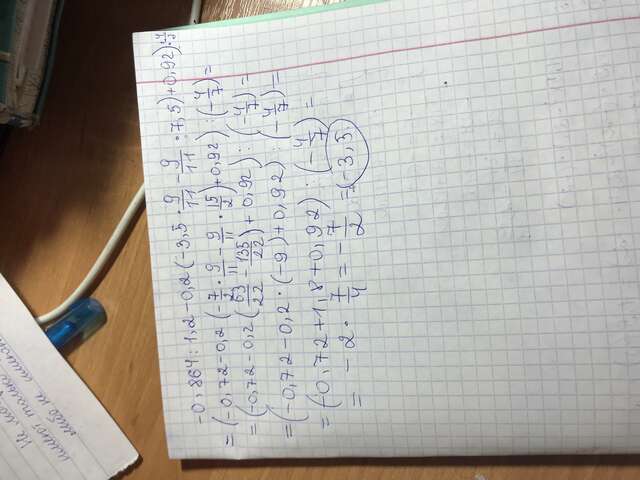 -0,864:1,2-0,2(-3,5·9/11-9/11·7,5)+0,92):4/7
=(-0,72-0,2(-7/2·9/11-9/11·15/2)+0,92):(-4/7)=
=(-0,72-0,2(63/22-135/22)+0,92):(-4/7)=
=(-0,72-0,2·(-9)+0,92):(-4/7)=
=(-0,72+1,8+0,92):(-4/7)=
=-2·7/4=-7/2=(-3,5)